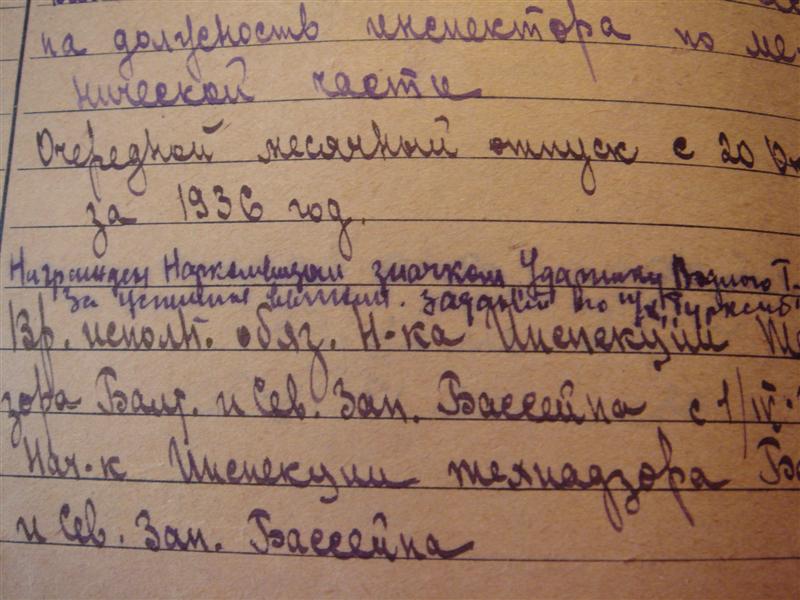 на должность инспектора по ме
нической части
Очередной месячный отпуск с 20
за 1936 год.
Награжден Наркомводом значком Ударнику Водного Т
За успешн. выполн. заданий по
Вр. исполн. обяз. Н-ка Инспекции
зора Балт. и Сев. Зап. Бассейна с 1/IV
Нач-к Инспекции технадзора Ба
и Сев. Зап. Бассейна